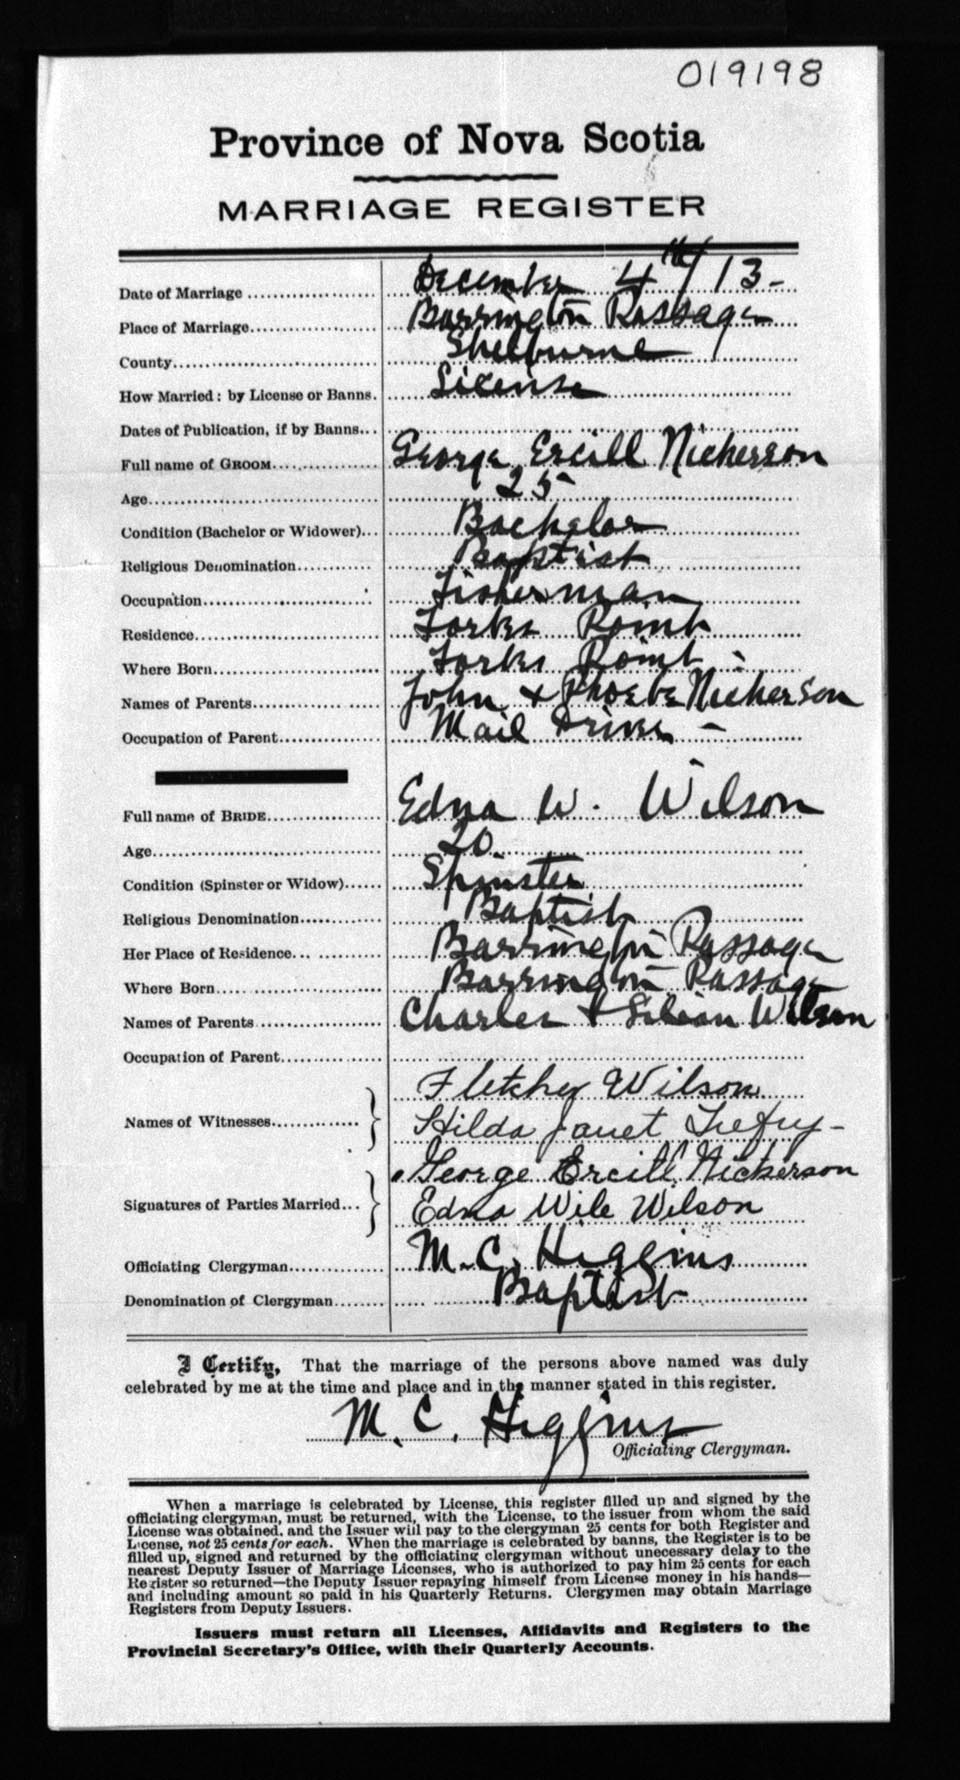 019198
Province of Nova Scotia
MARRIAGE REGISTER
Date of Marriage December 4th/13-
Place of Marriage Barrington Passage
County Shelburne
How Married: by License or Banns. License
Dates of Publication, if by Banns
Full name of GROOM George Ercill Nickerson
Age 25
Condition (Bachelor or Widower) Bachelor
Religious Denomination Baptist
Occupation Fisherman
Residence Forbes Point
Where Born Forbes Point
Names of Parents John & Phoebe Nickerson
Occupation of Parent Mail Driver -
Full name of BRIDE Edna W. Wilson
Age 20
Condition (Spinster or Widow) Spinster
Religious Denomination Baptist
Her Place of Residence Barrington Passage
Where Born Barrington Passage
Names of Parents Charles & Lilian Wilson
Occupation of Parent
Names of Witnesses Fletcher Wilson
Hilda Janet Trefry -
Signatures of Parties Married George Ercill Nickerson
Edna Wile Wilson
Officiating Clergyman M. C. Higgins
Denomination of Clergyman Baptist
I Certify, That the marriage of the persons above named was duly
celebrated by me at the time and place and in the manner stated in this register.
M. C. Higgins
Officiating Clergyman.
When a marriage is celebrated by License, this register filled up and signed by the
officiating clergyman, must be returned, with the License, to the issuer from whom the said
License was obtained, and the Issuer will pay to the clergyman 25 cents for both Register and
License, not 25 cents for each. When the marriage is celebrated by banns, the Register is to be
filled up, signed and returned by the officiating clergyman without unecessary delay to the
nearest Deputy Issuer of Marriage Licenses, who is authorized to pay him 25 cents for each
Register so returned—the Deputy Issuer repaying himself from License money in his hands—
and including amount so paid in his Quarterly Returns. Clergymen may obtain Marriage
Registers from Deputy Issuers.
Issuers must return all Licenses, Affidavits and Registers to the
Provincial Secretary's Office, with their Quarterly Accounts.